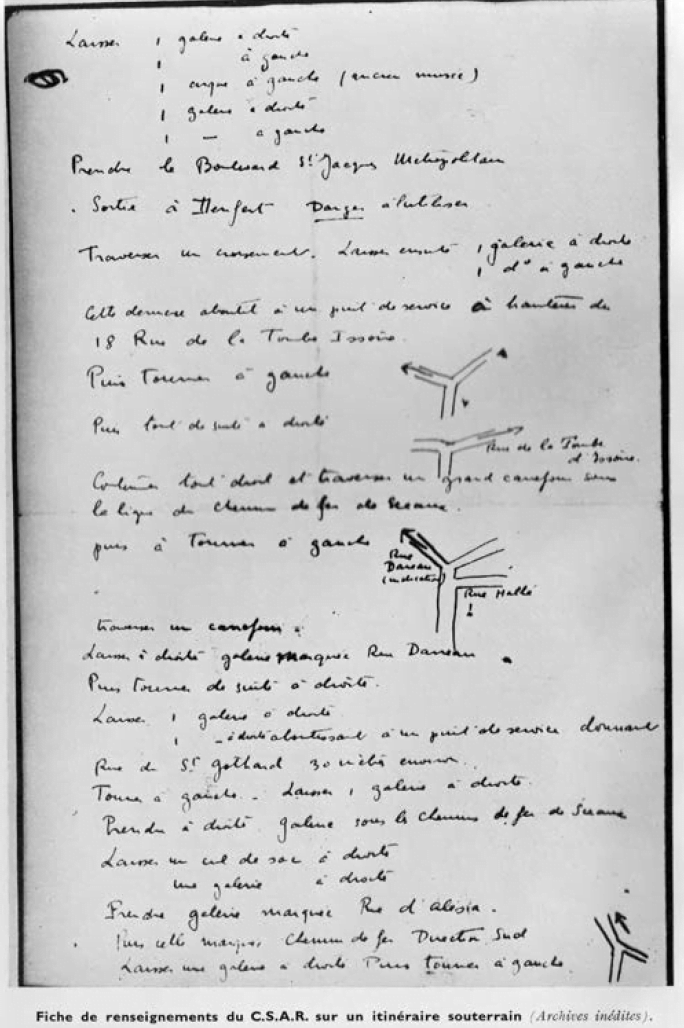 Laisser 1 galerie à droite
1 à gauche
1 crique à gauche (ancien musée)
1 galerie à droite
1 — à gauche
Prendre le Boulevard St Jacques Métropolitain
. Sortie à Denfert Danger à l'utiliser
Traverser un croisement. Laisser ensuite 1 galerie à droite
1 d° à gauche
Cette dernière aboutit à un puit de service à hauteur du
18 Rue de la Tombe Issoire.
Puis tourner à gauche
Puis tout de suite à droite
Rue de la Tombe
d'Issoire.
Continuer tout droit et traverser un grand carrefour sous
la ligne du chemin de fer de Sceaux.
puis à Tourner à gauche
Rue
Dareau
(indication)
Rue Hallé
!
traverser un carrefour.
Laisser à droite galerie marquée Rue Dareau
Puis tourner de suite à droite.
Laisser 1 galerie à droite
1 – à droite aboutissant à un puit de service donnant
Rue du St Gothard 30 mètres environ.
Tourner à gauche. Laisser 1 galerie à droite.
Prendre à droite galerie sous le chemin de fer de Sceaux
Laisser un cul de sac à droite
une galerie à droite
Prendre galerie marquée Rue d'Alésia.
Puis celle marquée Chemin de fer Direction Sud
Laisser une galerie à droite Puis tourner à gauche
Fiche de renseignements du C.S.A.R. sur un itinéraire souterrain (Archives inédites).